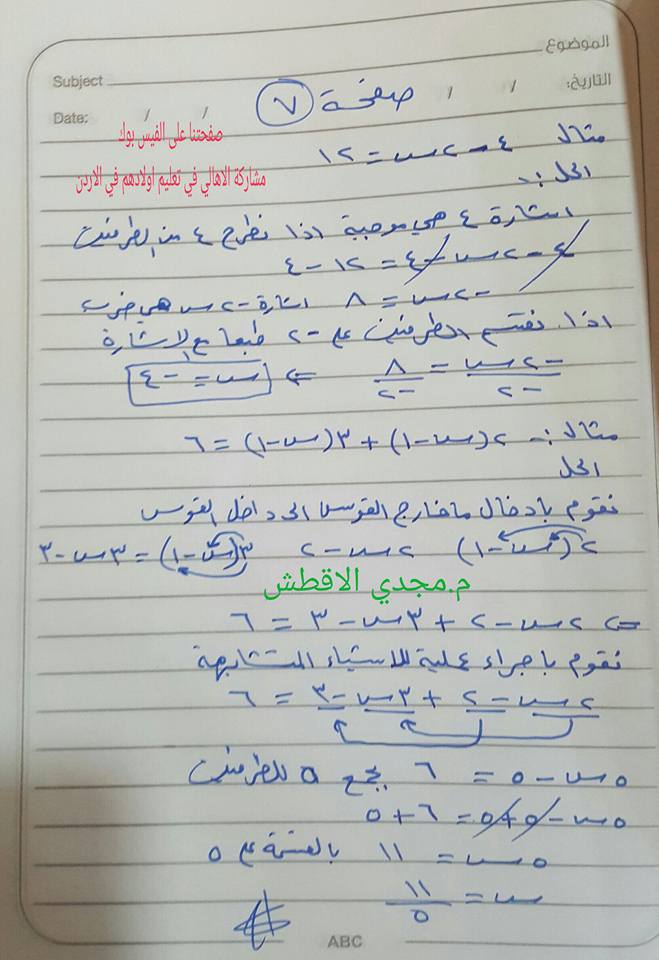 الموضوع
Subject
التاريخ: / /
Date: / /
صفحة ٧
صفحتنا على الفيس بوك
مشاركة الاهالي في تعليم اولادهم في الاردن
مثال ٤ - ٢س = ١٢
الحل :-
اشارة ٤ هي موجبة اذا نطرح ٤ من الطرفين
٤ - ٢س - ٤ = ١٢ - ٤
-٢س = ٨ اشارة -٢س هي ضرب
اذا نقسم الطرفين على -٢ طبعا مع الاشارة
-٢س / -٢ = ٨ / -٢ ⇐ س = -٤
مثال :- ٢(س-١) + ٣(س-١) = ٦
الحل
نقوم بادخال ما خارج القوس الى داخل القوس
٢(س-١) ٢س-٢ ٣(س-١) = ٣س-٣
م.مجدي الاقطش
⇐ ٢س-٢ + ٣س-٣ = ٦
نقوم باجراء عملية للاشياء المتشابهة
٢س-٢ + ٣س-٣ = ٦
٥س-٥ = ٦ بجمع ٥ للطرفين
٥س-٥+٥ = ٦+٥
٥س = ١١ بالقسمة على ٥
س = ١١ / ٥
ABC